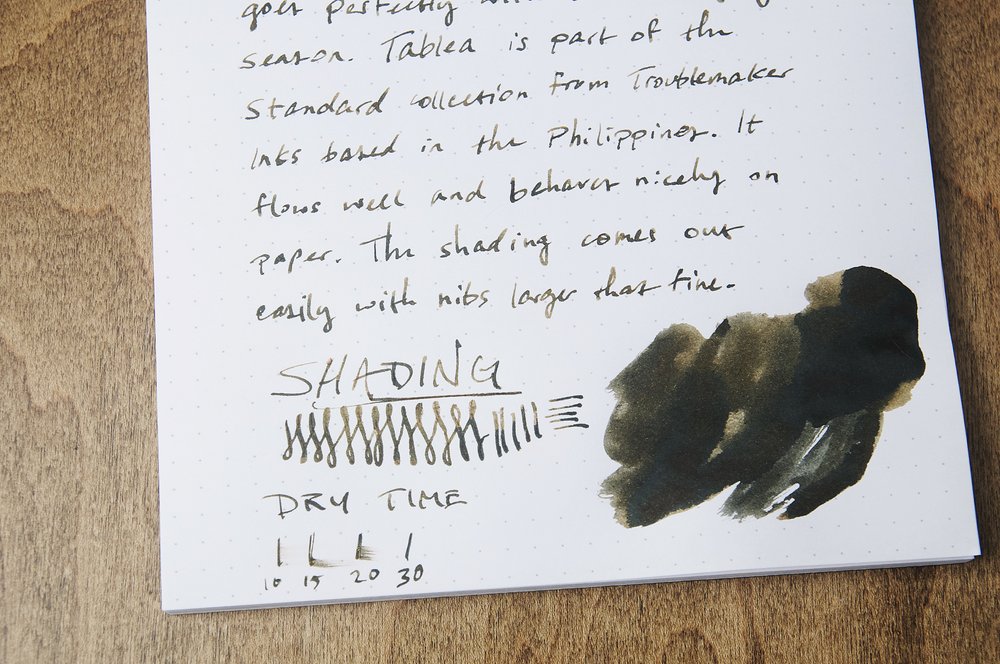 goes perfectly
season. Tablea is part of the
Standard collection from Troublemaker
Inks based in the Philippines. It
flows well and behaves nicely on
paper. The shading comes out
easily with nibs larger that fine.
SHADING
DRY TIME
10 15 20 30